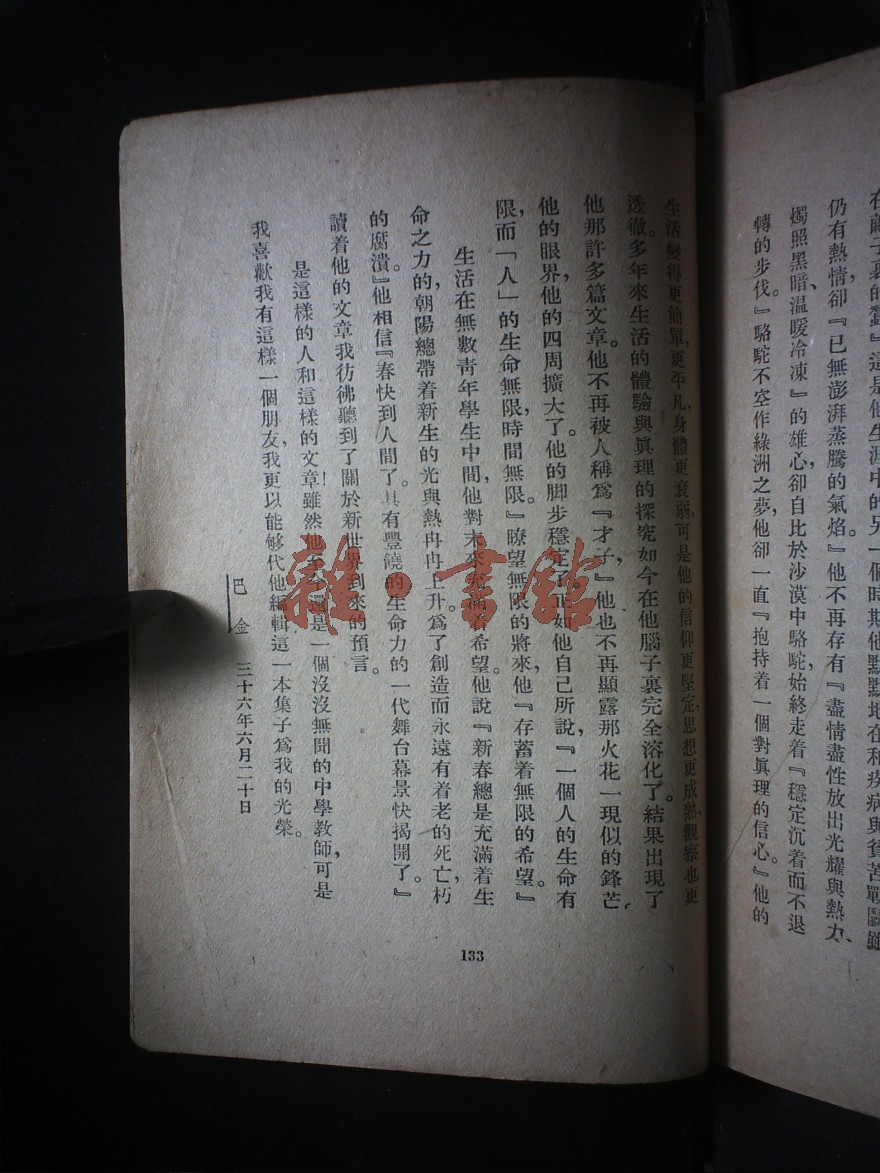 在繭子裏的蠶』這是他生涯中的另一個時期他默默地在和疾病與貧苦戰鬭雖
仍有熱情卻『已無澎湃蒸騰的氣焰。』他不再存有『盡情盡性放出光耀與熱力、
燭照黑暗、温暖冷凍』的雄心，卻自比於沙漠中駱駝，始終走着『穩定沉着而不退
轉的步伐。』駱駝不空作綠洲之夢，他卻一直『抱持着一個對眞理的信心。』他的
生活變得更簡單，更平凡，身體更衰弱，可是他的信仰更堅定，思想更成熟，觀察也更
透徹。多年來生活的體驗與眞理的探究如今在他腦子裏完全溶化了。結果出現了
他那許多篇文章。他不再被人稱爲『才子，』他也不再顯露那火花一現似的鋒芒。
他的眼界，他的四周擴大了。他的脚步穩定了。正如他自己所說，『一個人的生命有
限，而「人」的生命無限，時間無限。』瞭望無限的將來，他『存蓄着無限的希望。』
生活在無數靑年學生中間，他對未來充滿着希望。他說『新春總是充滿着生
命之力的，朝陽總帶着新生的光與熱冉冉上升。爲了創造而永遠有着老的死亡，朽
的腐潰。』他相信『春快到人間了。具有豐饒的生命力的一代舞台幕景快揭開了。』
讀着他的文章我彷彿聽到了關於新世界到來的預言。
是這樣的人和這樣的文章！雖然他至今還是一個沒沒無聞的中學教師，可是
我喜歡我有這樣一個朋友，我更以能够代他編輯這一本集子爲我的光榮。
巴金 三十六年六月二十日
133
雜·書館